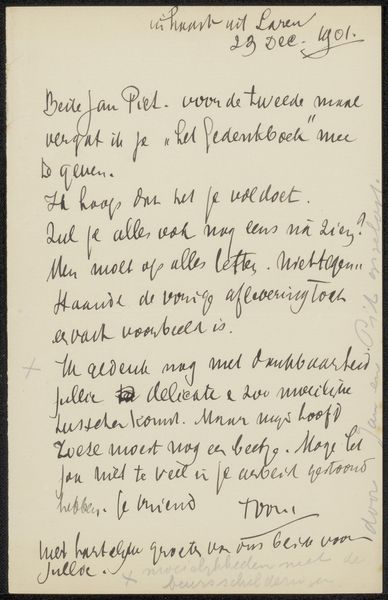 in haast uit Laren
23 Dec. 1901.
Beste Jan Piet. voor de tweede maal
vergat ik je "het Gedenkboek" mee
te geven.
Ik hoop dat het je voldoet.
Zul je alles ook nog eens ná zien?
Men moet op alles letten.
de vorige aflevering toch
er van voorbeeld is.
x Ik gedenk nog met dankbaarheid
jullie delicate & zoo moeilijke
tusschenkomst. Maar mijn hoofd
moest nog een beetje. Moge het
Jan niet te veel in je arbeid gestoord
hebben. Je vriend Toon
Met hartelijke groeten van ons beide voor
jullie.
x moeielijkheden met de
beursschilderingen.
door Jan en Piet